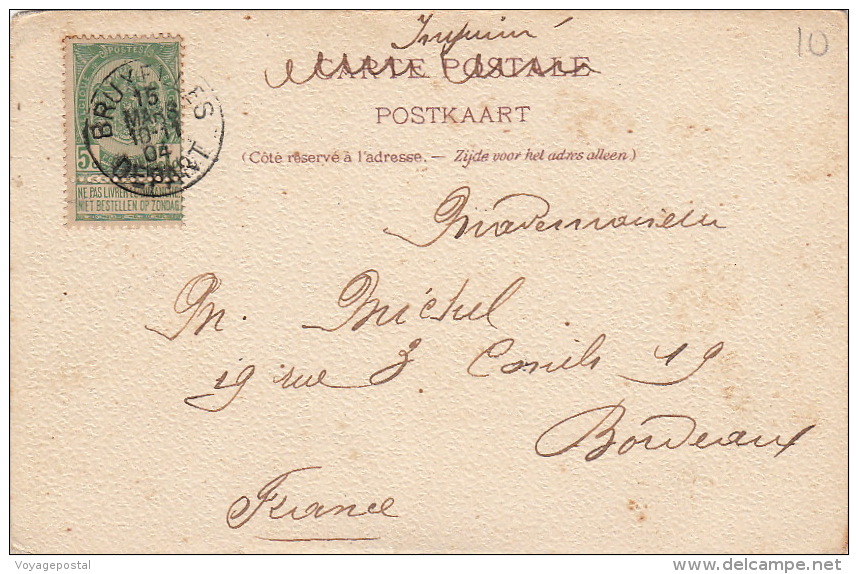 Imprimé
10
CARTE POSTALE
POSTKAART
(Côté réservé à l'adresse. — Zijde voor het adres alleen)
POSTES
5
BRUXELLES
15
MARS
10-11
04
DEPART
NE PAS LIVRER LE DIMANCHE
NIET BESTELLEN OP ZONDAG
Mademoiselle
M. Michel
19 rue 3 Conils 19
Bordeaux
France
Voyagepostal
delcampe.net